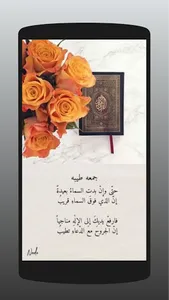 جمعه طيبه
حتّى وإنْ بدت السماءُ بعيدةً
إنّ الذي فوقَ السماءِ قريبُ
فارفعْ يديكَ إلى الإلهِ مناجياً
إنّ الجروحَ مع الدعاءِ تطيبُ